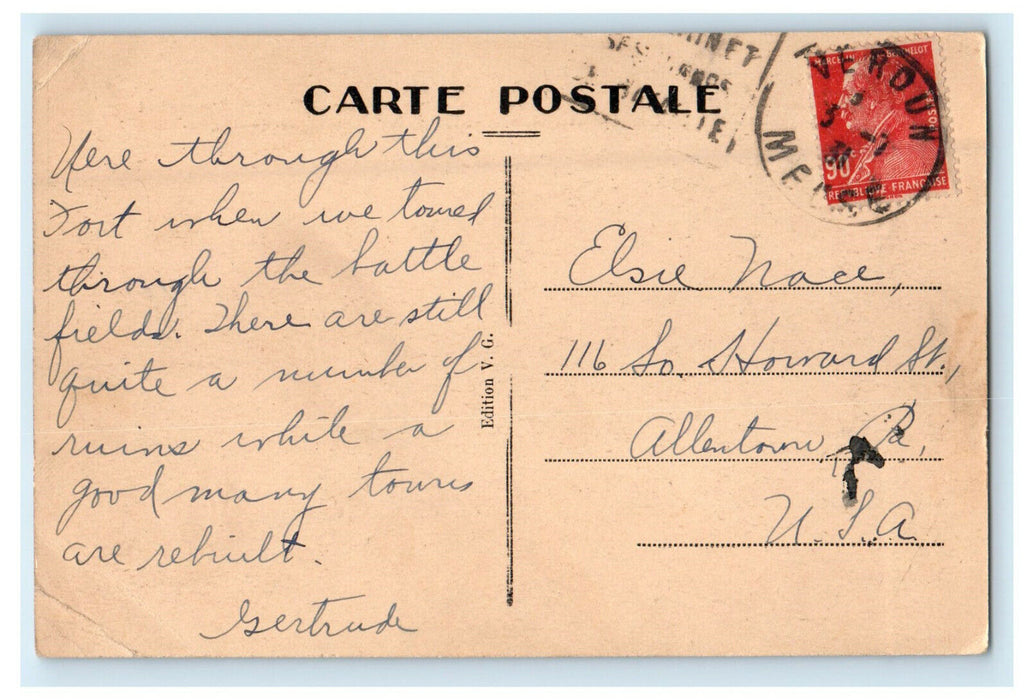 CARTE POSTALE
VERDUN
MEUSE
BERTHELOT
90
REPUBLIQUE FRANÇAISE
Were through this
Fort when we toured
through the battle
fields. There are still
quite a number of
ruins while a
good many towns
are rebuilt.
Gertrude
Edition V. G.
Elsie Nace,
116 So. Howard St.,
Allentown, Pa,
U.S.A.